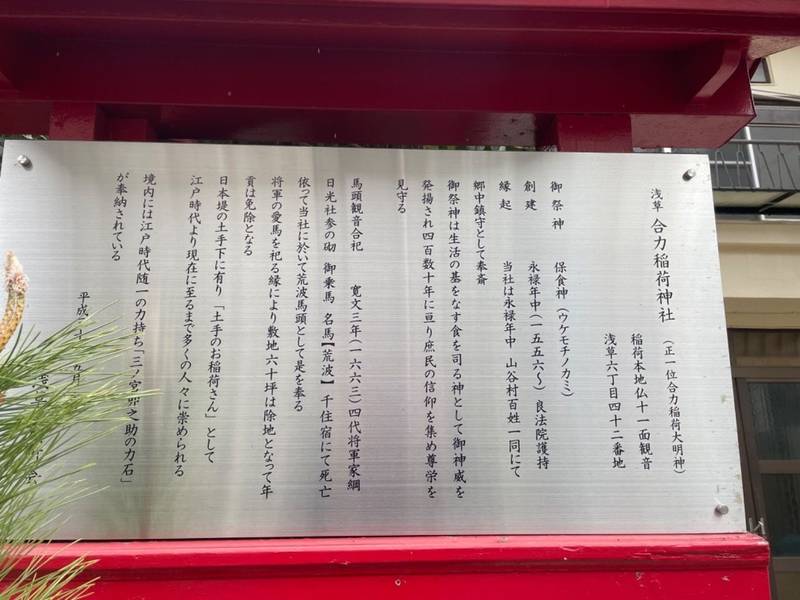 浅草 合力稲荷神社 （正一位合力稲荷大明神）
稲荷本地仏十一面観音
浅草六丁目四十二番地
御祭神 保食神（ウケモチノカミ）
創建 永禄年中（一五五六～）良法院護持
縁起 当社は永禄年中 山谷村百姓一同にて
郷中鎮守として奉斎
御祭神は生活の基をなす食を司る神として御神威を
発揚され四百数十年に亘り庶民の信仰を集め尊栄を
見守る
馬頭観音合祀 寛文三年（一六六三）四代将軍家綱
日光社参の砌 御乗馬 名馬【荒波】千住宿にて死亡
依って当社に於いて荒波馬頭として是を奉る
将軍の愛馬を祀る縁により敷地六十坪は除地となって年
貢は免除となる
日本堤の土手下に有り「土手のお稲荷さん」として
江戸時代より現在に至るまで多くの人々に崇められる
境内には江戸時代随一の力持ち「三ノ宮卯之助の力石」
が奉納されている
平成 五月